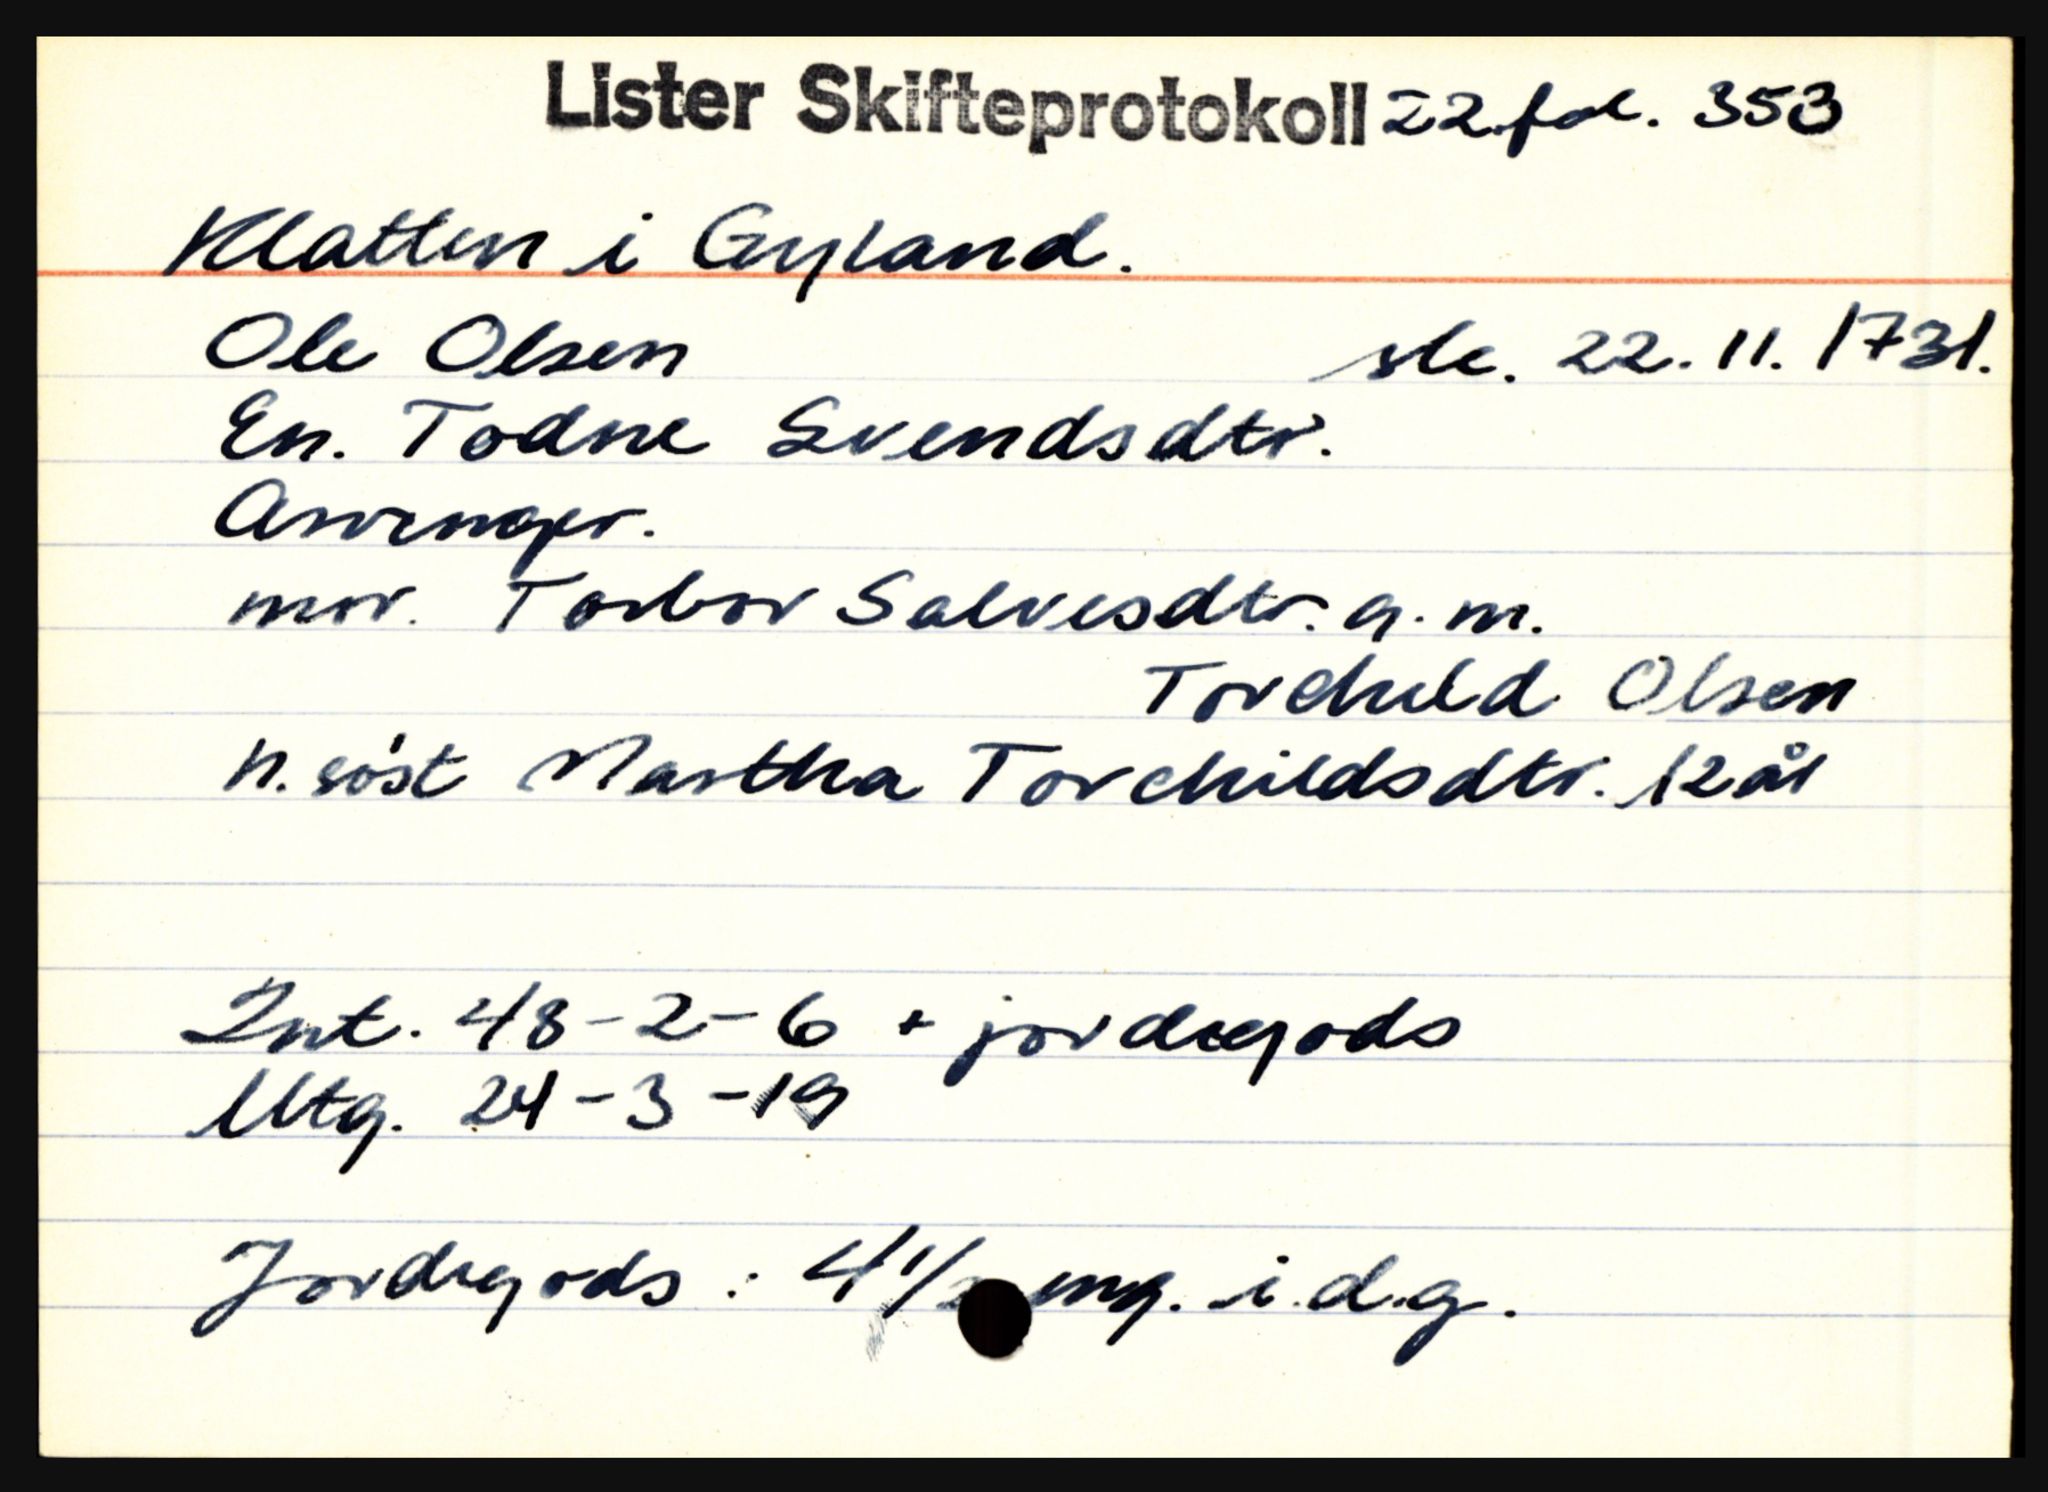 Lister Skifteprotokoll 22. fol. 353
Klatten i Gyland.
Ole Olsen ste. 22. 11. 1731.
En. Todne Svendsdtr.
Arvinger.
mor. Torbor Salvesdtr. g. m.
Torchild Olsen
h. søst Martha Torchildsdtr. 12 år
Int. 48 - 2 - 6 + jordegods
Utg. 24 - 3 - 19
Jordegods : 4 1/2 eng. i. d. g.